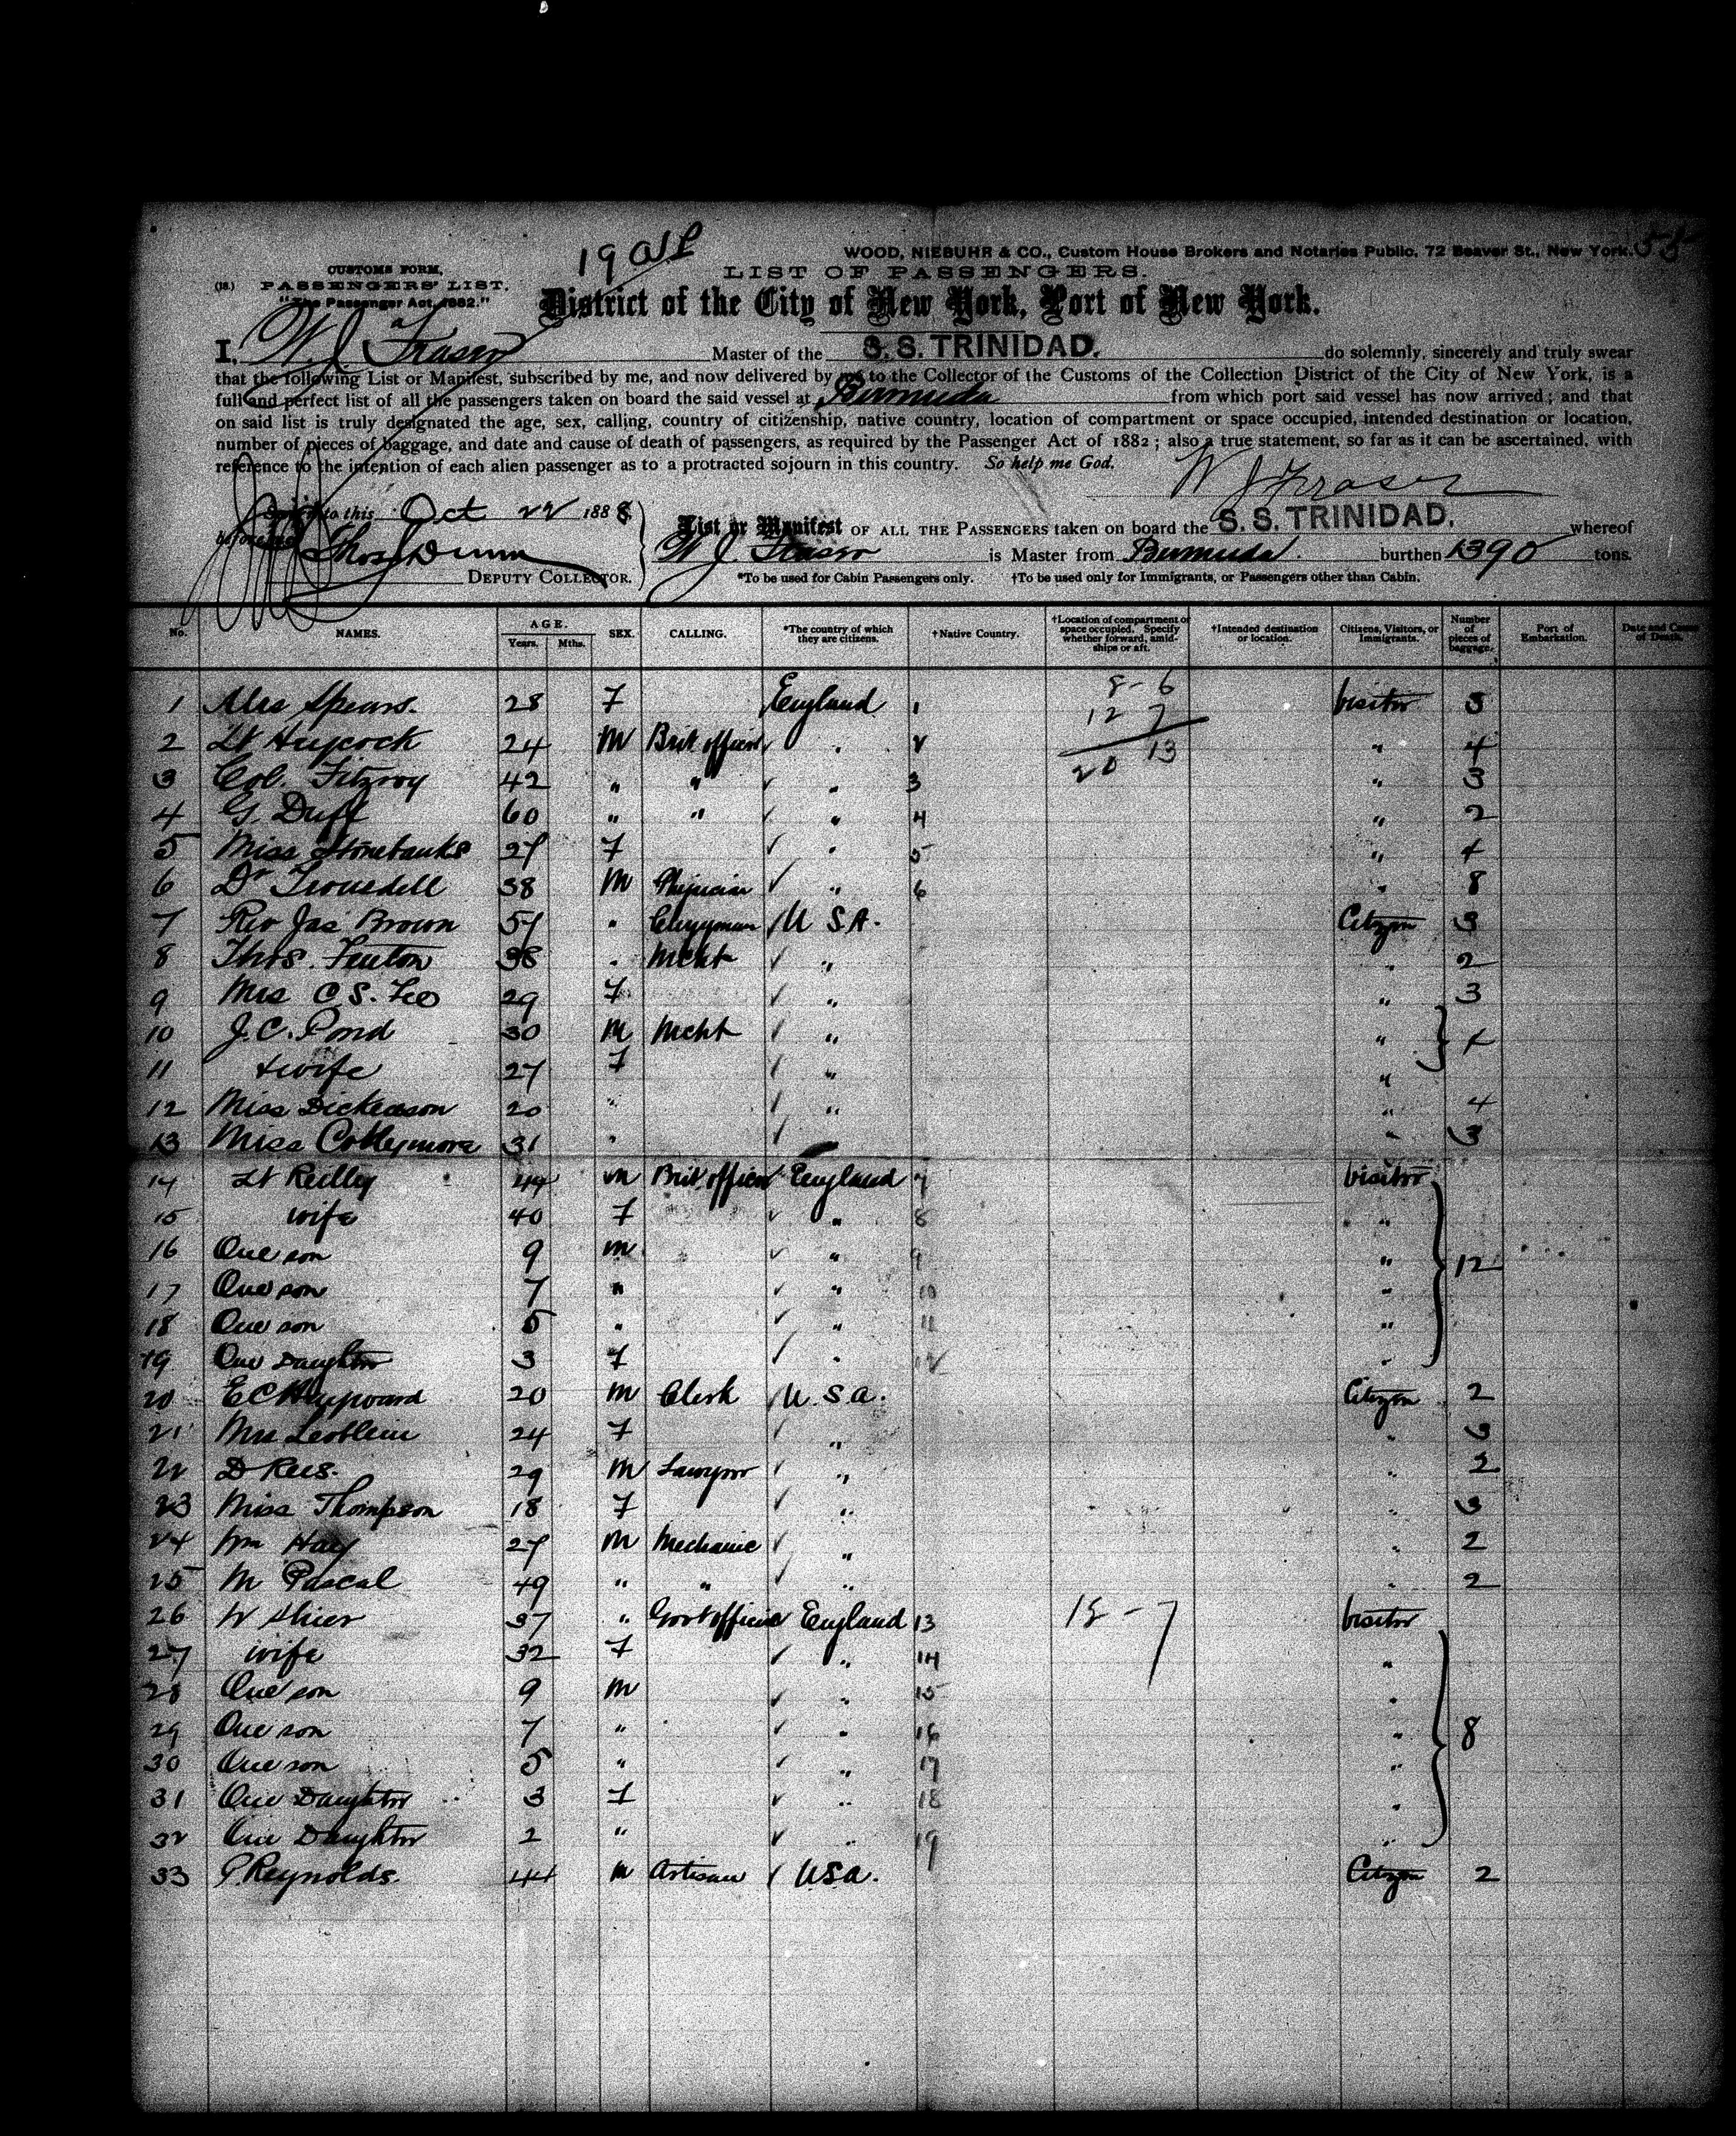 19 all
WOOD, NIEBUHR & CO., Custom House Brokers and Notaries Public, 72 Beaver St., New York.
55
CUSTOMS FORM,
(18.) PASSENGERS' LIST,
"The Passenger Act, 1882."
LIST OF PASSENGERS.
District of the City of New York, Port of New York.
I, W. J. Fraser Master of the S. S. TRINIDAD. do solemnly, sincerely and truly swear
that the following List or Manifest, subscribed by me, and now delivered by me to the Collector of the Customs of the Collection District of the City of New York, is a
full and perfect list of all the passengers taken on board the said vessel at Bermuda from which port said vessel has now arrived; and that
on said list is truly designated the age, sex, calling, country of citizenship, native country, location of compartment or space occupied, intended destination or location,
number of pieces of baggage, and date and cause of death of passengers, as required by the Passenger Act of 1882; also a true statement, so far as it can be ascertained, with
reference to the intention of each alien passenger as to a protracted sojourn in this country. So help me God.
W J Fraser
to this Oct 22 1888
before me
Thos Dunn
DEPUTY COLLECTOR.
List or Manifest OF ALL THE PASSENGERS taken on board the S. S. TRINIDAD. whereof
W. J. Fraser is Master from Bermuda. burthen 1390 tons.
*To be used for Cabin Passengers only. †To be used only for Immigrants, or Passengers other than Cabin.
No. NAMES. AGE. Years. Mths. SEX. CALLING. *The country of which they are citizens. †Native Country. †Location of compartment or space occupied. Specify whether forward, amidships or aft. †Intended destination or location. Citizens, Visitors, or Immigrants. Number of pieces of baggage. Port of Embarkation. Date and Cause of Death.
8 - 6
12 7
20 13
1 Mrs Spears. 28 F England 1 Visitor 3
2 Lt Heycock 24 M Brit officer " 2 " 4
3 Col. Fitzroy 42 " " " 3 " 3
4 G. Duff 60 " " " 4 " 2
5 Miss Stonebanks 27 F " 5 " 4
6 Dr 38 M Physician " 6 " 8
7 Rev Jas Brown 57 " Clergyman U S A. Citizen 3
8 Thos. Fenton 38 " Mcht " " 2
9 Mrs C. S. Leo 29 F " " 3
10 J. C. Pond 30 M Mcht " " 4
11 & wife 27 F " "
12 Miss Dickerson 20 " " " 4
13 Miss 31 " " " 3
14 Lt Reilley 44 M Brit officer England 7 Visitor
15 wife 40 F " 8 "
16 One son 9 M " 9 " 12
17 One son 7 " " 10 "
18 One son 5 " " 11 "
19 One Daughter 3 F " 12 "
20 E C Heyward 20 M Clerk U. S. A. Citizen 2
21 Mrs 24 F " " 3
22 D Rees. 29 M Lawyer " " 2
23 Miss Thompson 18 F " " 3
24 Wm Hay 27 M Mechanic " " 2
25 M Pascal 49 " " " " 2
26 W Shier 37 " Govt officer England 13 18 - 7 Visitor
27 wife 32 F " 14 "
28 One son 9 M " 15 "
29 One son 7 " " 16 " 8
30 One son 5 " " 17 "
31 One Daughter 3 F " 18 "
32 One Daughter 2 " " 19 "
33 P Reynolds. 44 M Artisan U S A. Citizen 2